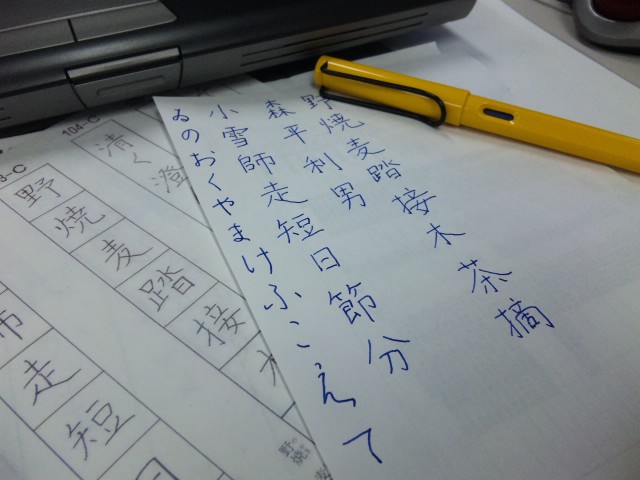 野焼麦踏接木茶摘
森平利男
小雪師走短日節分
ゐのおくやまけふこえて
104-C
清く澄
3-C
野焼麦踏接木
師走短日
野焼